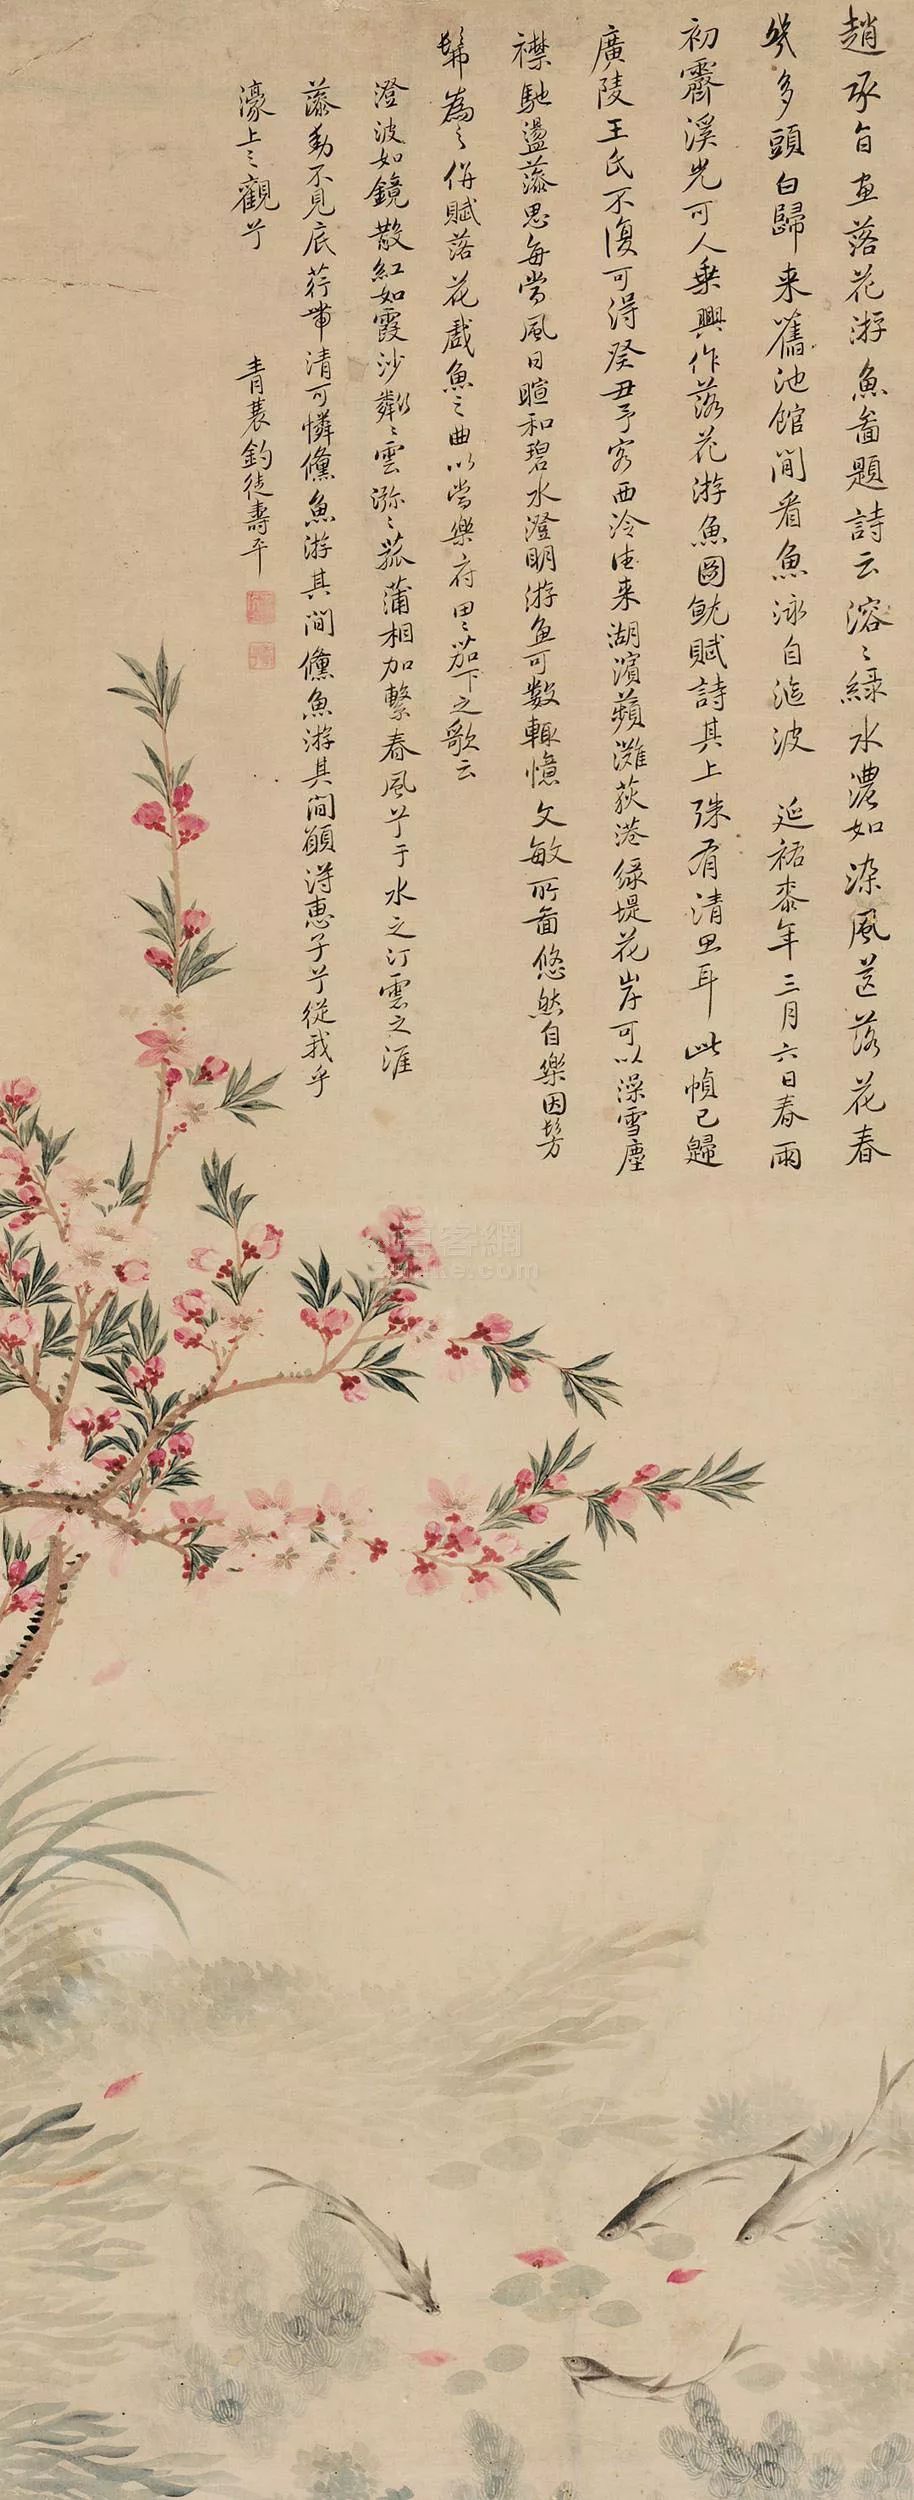 趙承旨畫落花游魚啚題詩云溶〻綠水濃如染風送落花春
幾多頭白歸来舊池館閒看魚泳自泡波 延祐柒年三月六日春雨
初霽溪光可人乗興作落花游魚圖就賦詩其上殊有清思耳 此幀已歸
廣陵王氏不復可得癸丑予客西泠往来湖濱蘋灘荻港緑堤花岸可以澡雪塵
襟馳盪藻思每當風日暄和碧水澄明游魚可數輒憶文敏所啚悠然自樂因髣
髴為之併賦落花戲魚之曲以當樂府田〻茄下之歌云
澄波如鏡散紅如霞沙粼〻雲瀰〻菰蒲相加繫春風兮于水之汀雲之涯
藻動不見底荇帶清可憐儵魚游其間儵魚游其間顧得惠子兮從我乎
濠上之觀兮
青蓑釣徒壽平